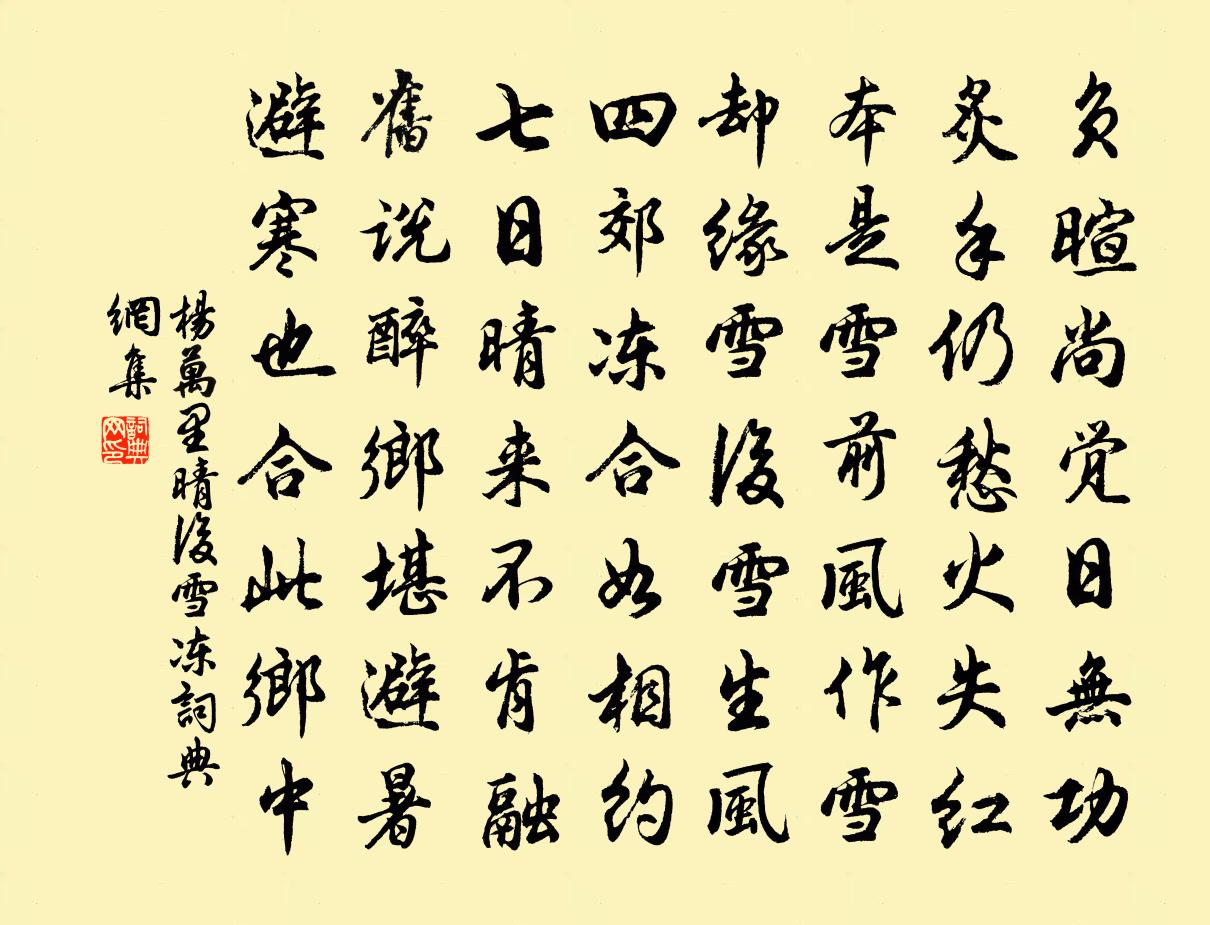 负暄尚觉日無功
炙手仍愁火失红
本是雪前風作雪
却缘雪後雪生風
四郊冻合如相约
七日晴来不肯融
舊说醉鄉堪避暑
避寒也合此鄉中
楊萬里晴後雪冻詞典
網集
詞典
网印